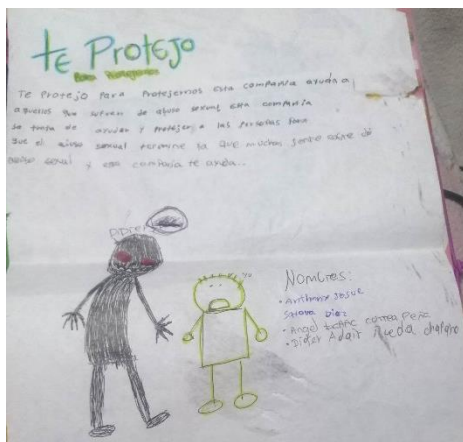 Te Protejo
Para Protegernos
Te Protejo Para Protejernos esta compañia ayuda a
aquellos que sufren de abuso sexual esta compañia
se trata de ayudar y protejer a las personas para
que el abuso sexual termine ya que mucha gente sufre de
abuso sexual y esa compañia te ayuda...
yo
Nombres:
• Anthony Josue
Diaz
• Angel Correa Peña
• Didier Adair Rueda